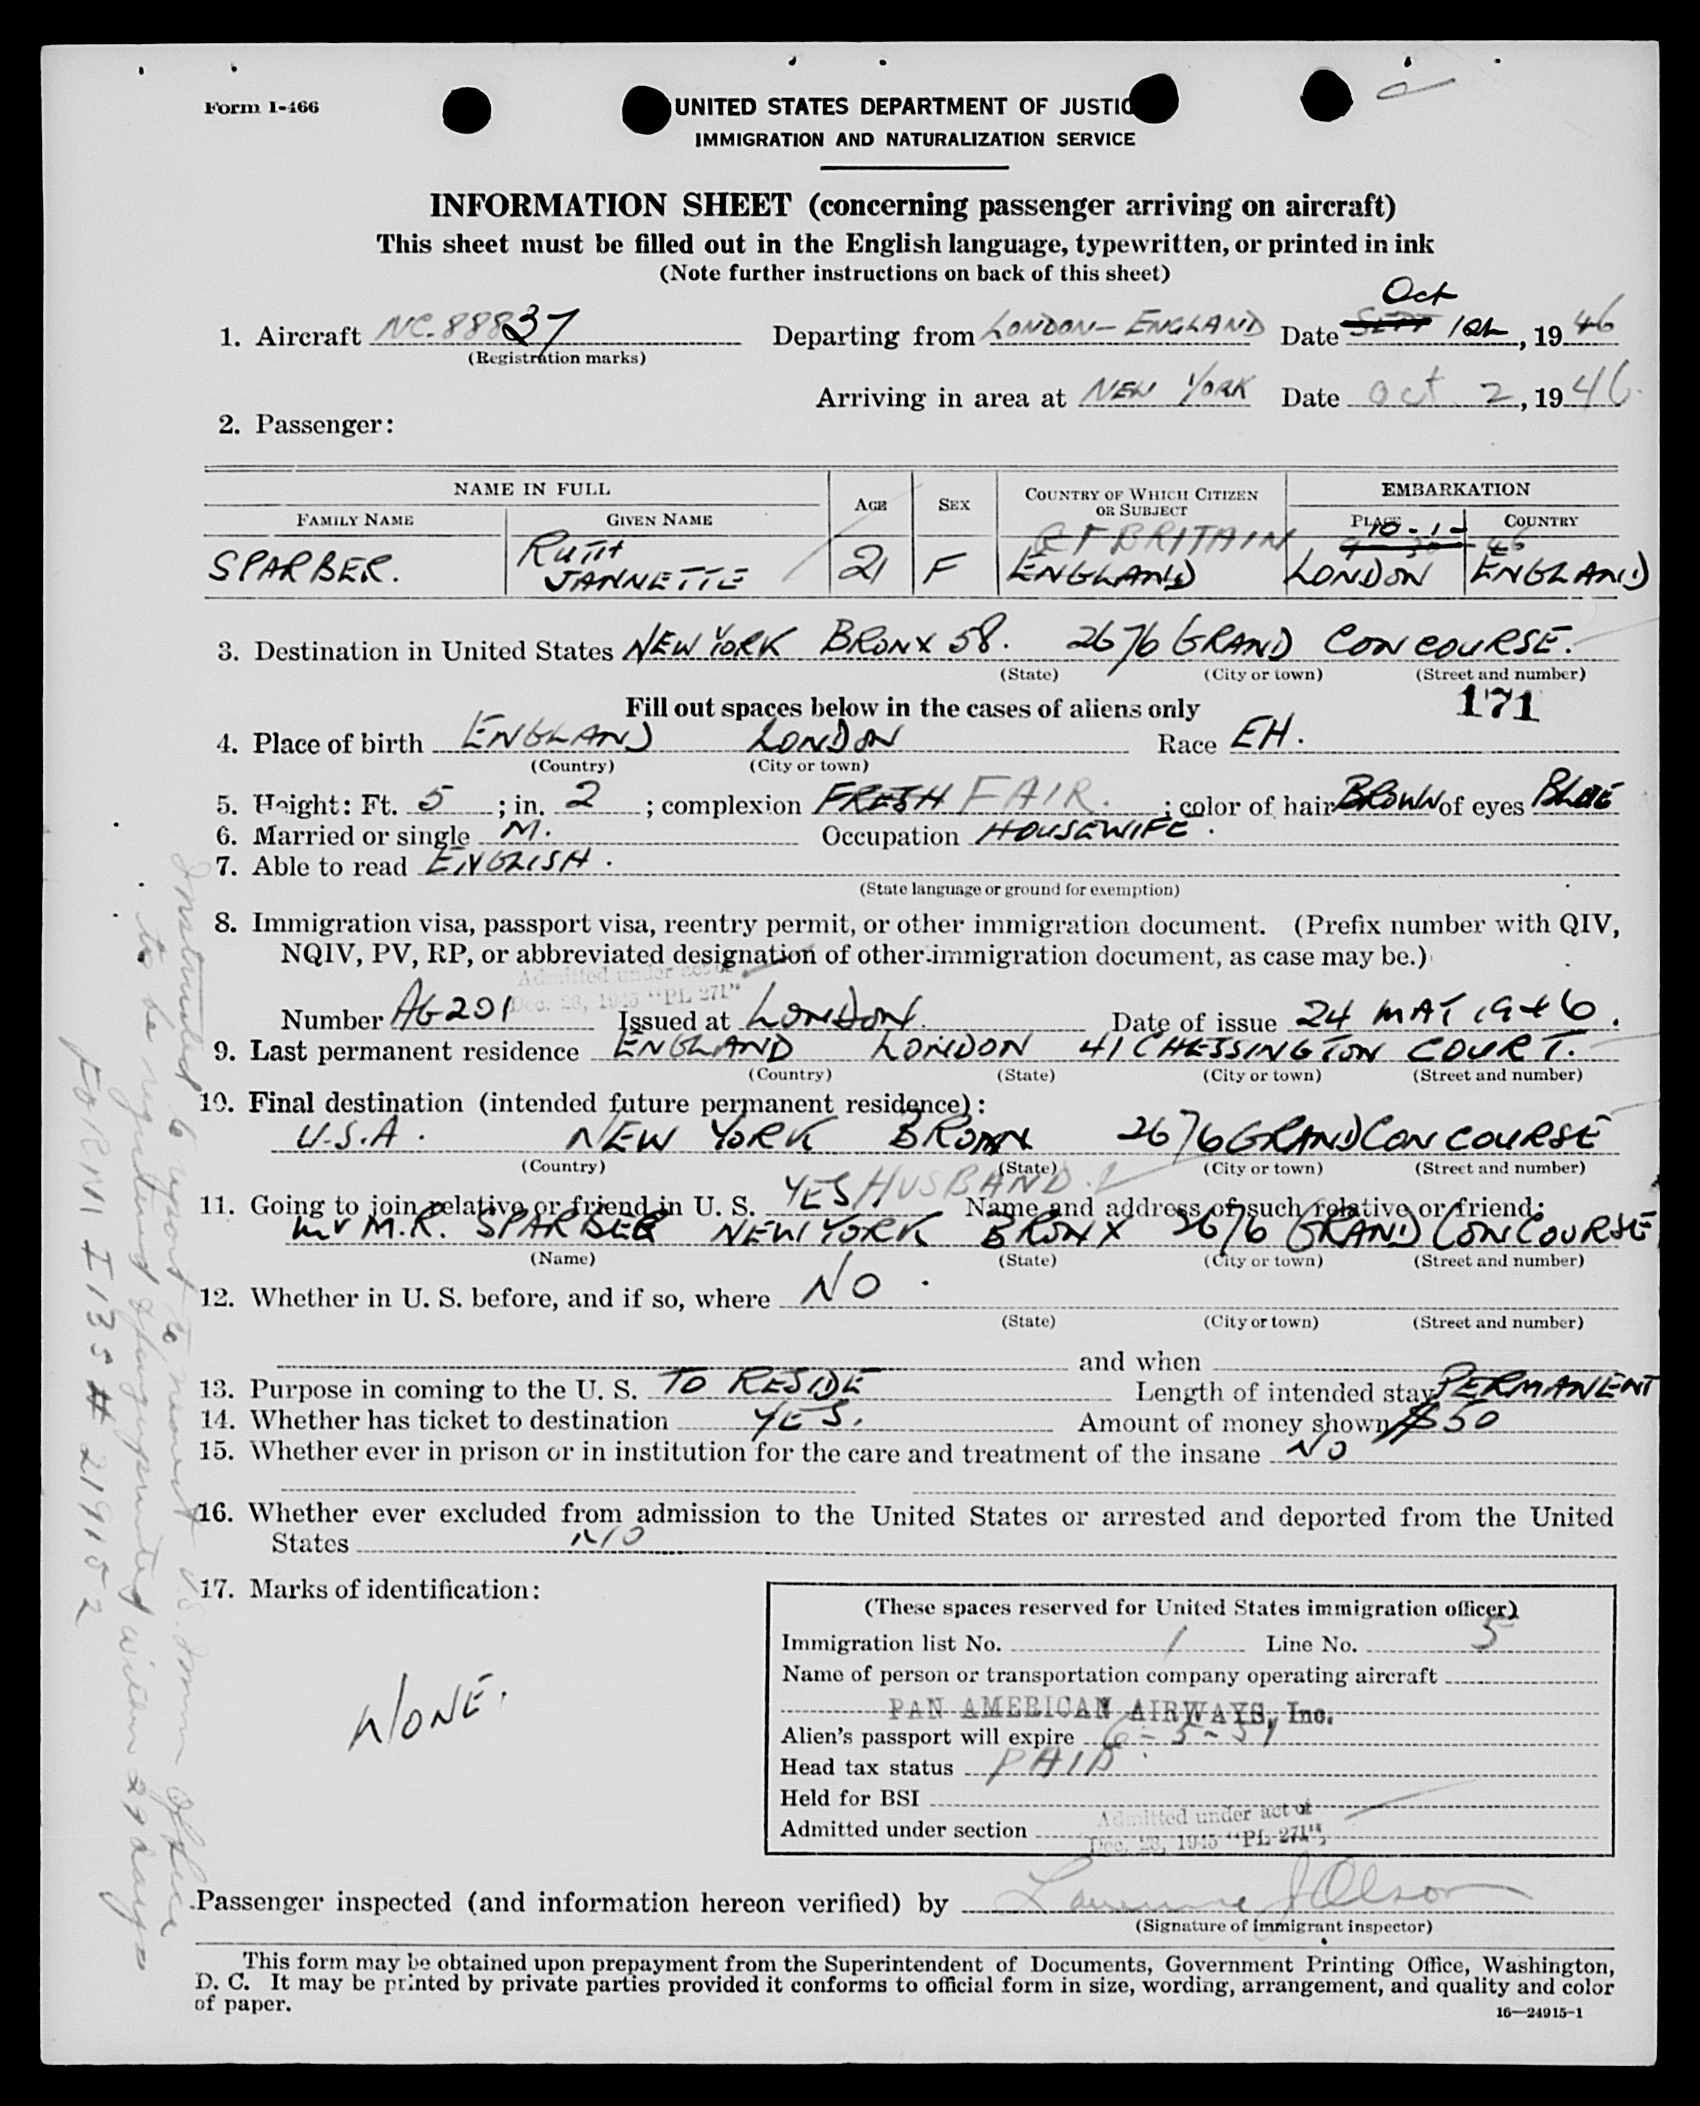 Form I-466
UNITED STATES DEPARTMENT OF JUSTIC
IMMIGRATION AND NATURALIZATION SERVICE
INFORMATION SHEET (concerning passenger arriving on aircraft)
This sheet must be filled out in the English language, typewritten, or printed in ink
(Note further instructions on back of this sheet)
Oct
1. Aircraft NC. 88837 Departing from LONDON - ENGLAND Date SEPT 1st, 1946
(Registration marks)
Arriving in area at NEW YORK Date Oct 2, 1946
2. Passenger:
NAME IN FULL AGE SEX COUNTRY OF WHICH CITIZEN OR SUBJECT EMBARKATION
FAMILY NAME GIVEN NAME PLACE COUNTRY
GT BRITAIN 10-1-46
SPARBER. RUTH JANNETTE 21 F ENGLAND LONDON ENGLAND
3. Destination in United States NEW YORK BRONX 58. 2676 GRAND CONCOURSE.
(State) (City or town) (Street and number)
Fill out spaces below in the cases of aliens only 171
4. Place of birth ENGLAND LONDON Race EH.
(Country) (City or town)
5. Height: Ft. 5; in. 2; complexion FRESH FAIR.; color of hair BROWN of eyes BLUE
6. Married or single M. Occupation HOUSEWIFE.
7. Able to read ENGLISH.
(State language or ground for exemption)
8. Immigration visa, passport visa, reentry permit, or other immigration document. (Prefix number with QIV,
NQIV, PV, RP, or abbreviated designation of other immigration document, as case may be.)
Admitted under act of
Dec. 28, 1945 "PL 271"
Number AG291 Issued at LONDON. Date of issue 24 MAY 1946.
9. Last permanent residence ENGLAND LONDON 41 CHESSINGTON COURT.
(Country) (State) (City or town) (Street and number)
10. Final destination (intended future permanent residence):
U.S.A. NEW YORK BRONX 2676 GRAND CONCOURSE
(Country) (State) (City or town) (Street and number)
11. Going to join relative or friend in U. S. YES HUSBAND. Name and address of such relative or friend:
Mr M.R. SPARBER NEW YORK BRONX 2676 GRAND CONCOURSE
(Name) (State) (City or town) (Street and number)
12. Whether in U. S. before, and if so, where NO.
(State) (City or town) (Street and number)
and when
13. Purpose in coming to the U. S. TO RESIDE Length of intended stay PERMANENT
14. Whether has ticket to destination YES. Amount of money shown $50
15. Whether ever in prison or in institution for the care and treatment of the insane NO
16. Whether ever excluded from admission to the United States or arrested and deported from the United
States NO
17. Marks of identification:
NONE.
(These spaces reserved for United States immigration officer)
Immigration list No. 1 Line No. 5
Name of person or transportation company operating aircraft
PAN AMERICAN AIRWAYS, Inc.
Alien's passport will expire 6-5-51
Head tax status PAID
Held for BSI
Admitted under section Admitted under act of
Dec. 28, 1945 "PL 271"
Passenger inspected (and information hereon verified) by Lawrence J Olson
(Signature of immigrant inspector)
This form may be obtained upon prepayment from the Superintendent of Documents, Government Printing Office, Washington,
D. C. It may be printed by private parties provided it conforms to official form in size, wording, arrangement, and quality and color
of paper.
16—24915-1
Instructed to report to nearest U.S. Immn office
to be registered & fingerprinted within 29 days
FORM I 135 # 2191052